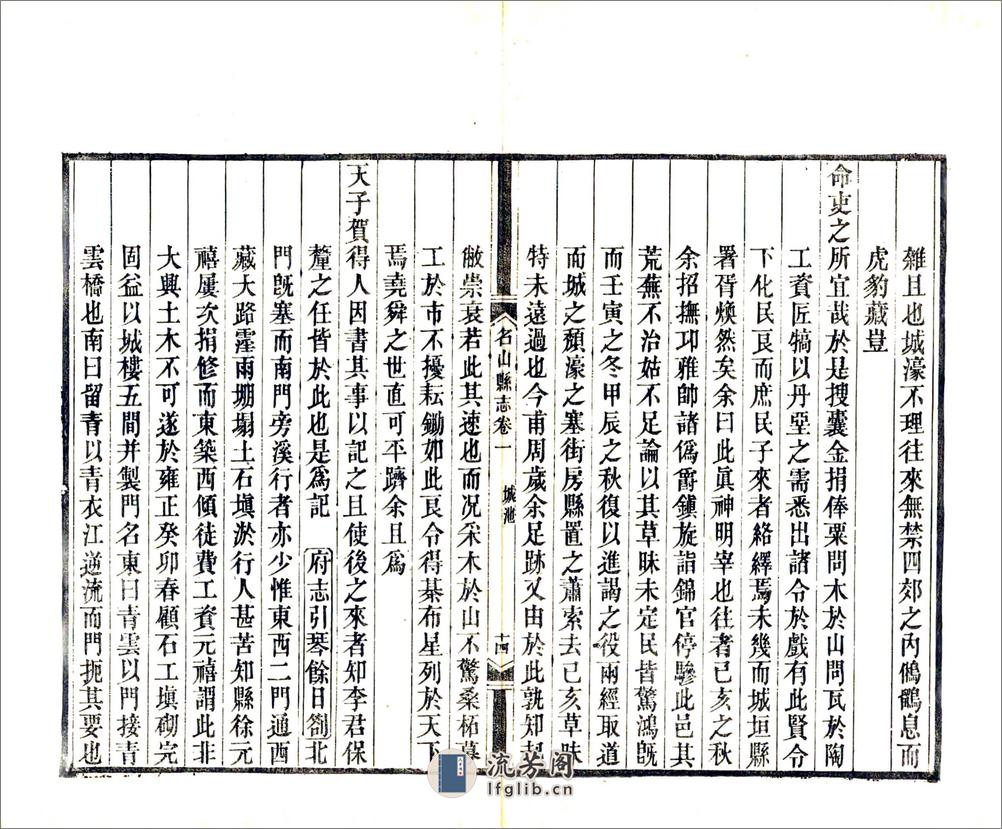 雜且也城濠不理往來無禁四郊之內鵂鶹息而
虎豹藏豈
命吏之所宜哉於是搜囊金捐俸粟問木於山問瓦於陶
工資匠犒以丹堊之需悉出諸令於戲有此賢令
下化民良而庶民子來者絡繹焉未幾而城垣縣
署胥煥然矣余曰此眞神明宰也往者己亥之秋
余招撫邛雅帥諸僞爵鎮旋詣錦官停驂此邑其
荒蕪不治姑不足論以其草昧未定民皆驚鴻旣
而壬寅之冬甲辰之秋復以進謁之役兩經取道
而城之頹濠之塞街房縣置之蕭索去己亥草昧
特未遠過也今甫周歲余足跡又由於此孰知起
敝崇衰若此其速也而況采木於山不驚桑柘募
工於市不擾耘鋤如此良令得棊布星列於天下
焉堯舜之世直可平躋余且爲
天子賀得人因書其事以記之且使後之來者知李君保
釐之任皆於此也是爲記 府志引琴餘日劄北
門旣塞而南門旁溪行者亦少惟東西二門通西
藏大路霪雨堋塌土石塡淤行人甚苦知縣徐元
禧屢次捐修而東築西傾徒費工資元禧謂此非
大興土木不可遂於雍正癸卯春顧石工塡砌完
固益以城樓五間并製門名東曰青雲以門接青
雲橋也南曰留青以青衣江逆流而門扼其要也
名山縣志卷一 城池 十四
流芳阁
lfglib.cn